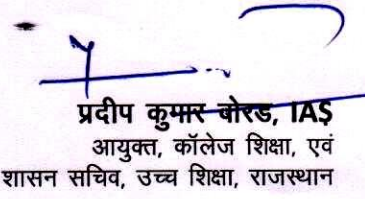 प्रदीप कुमार बोरड, IAS
आयुक्त, कॉलेज शिक्षा, एवं
शासन सचिव, उच्च शिक्षा, राजस्थान